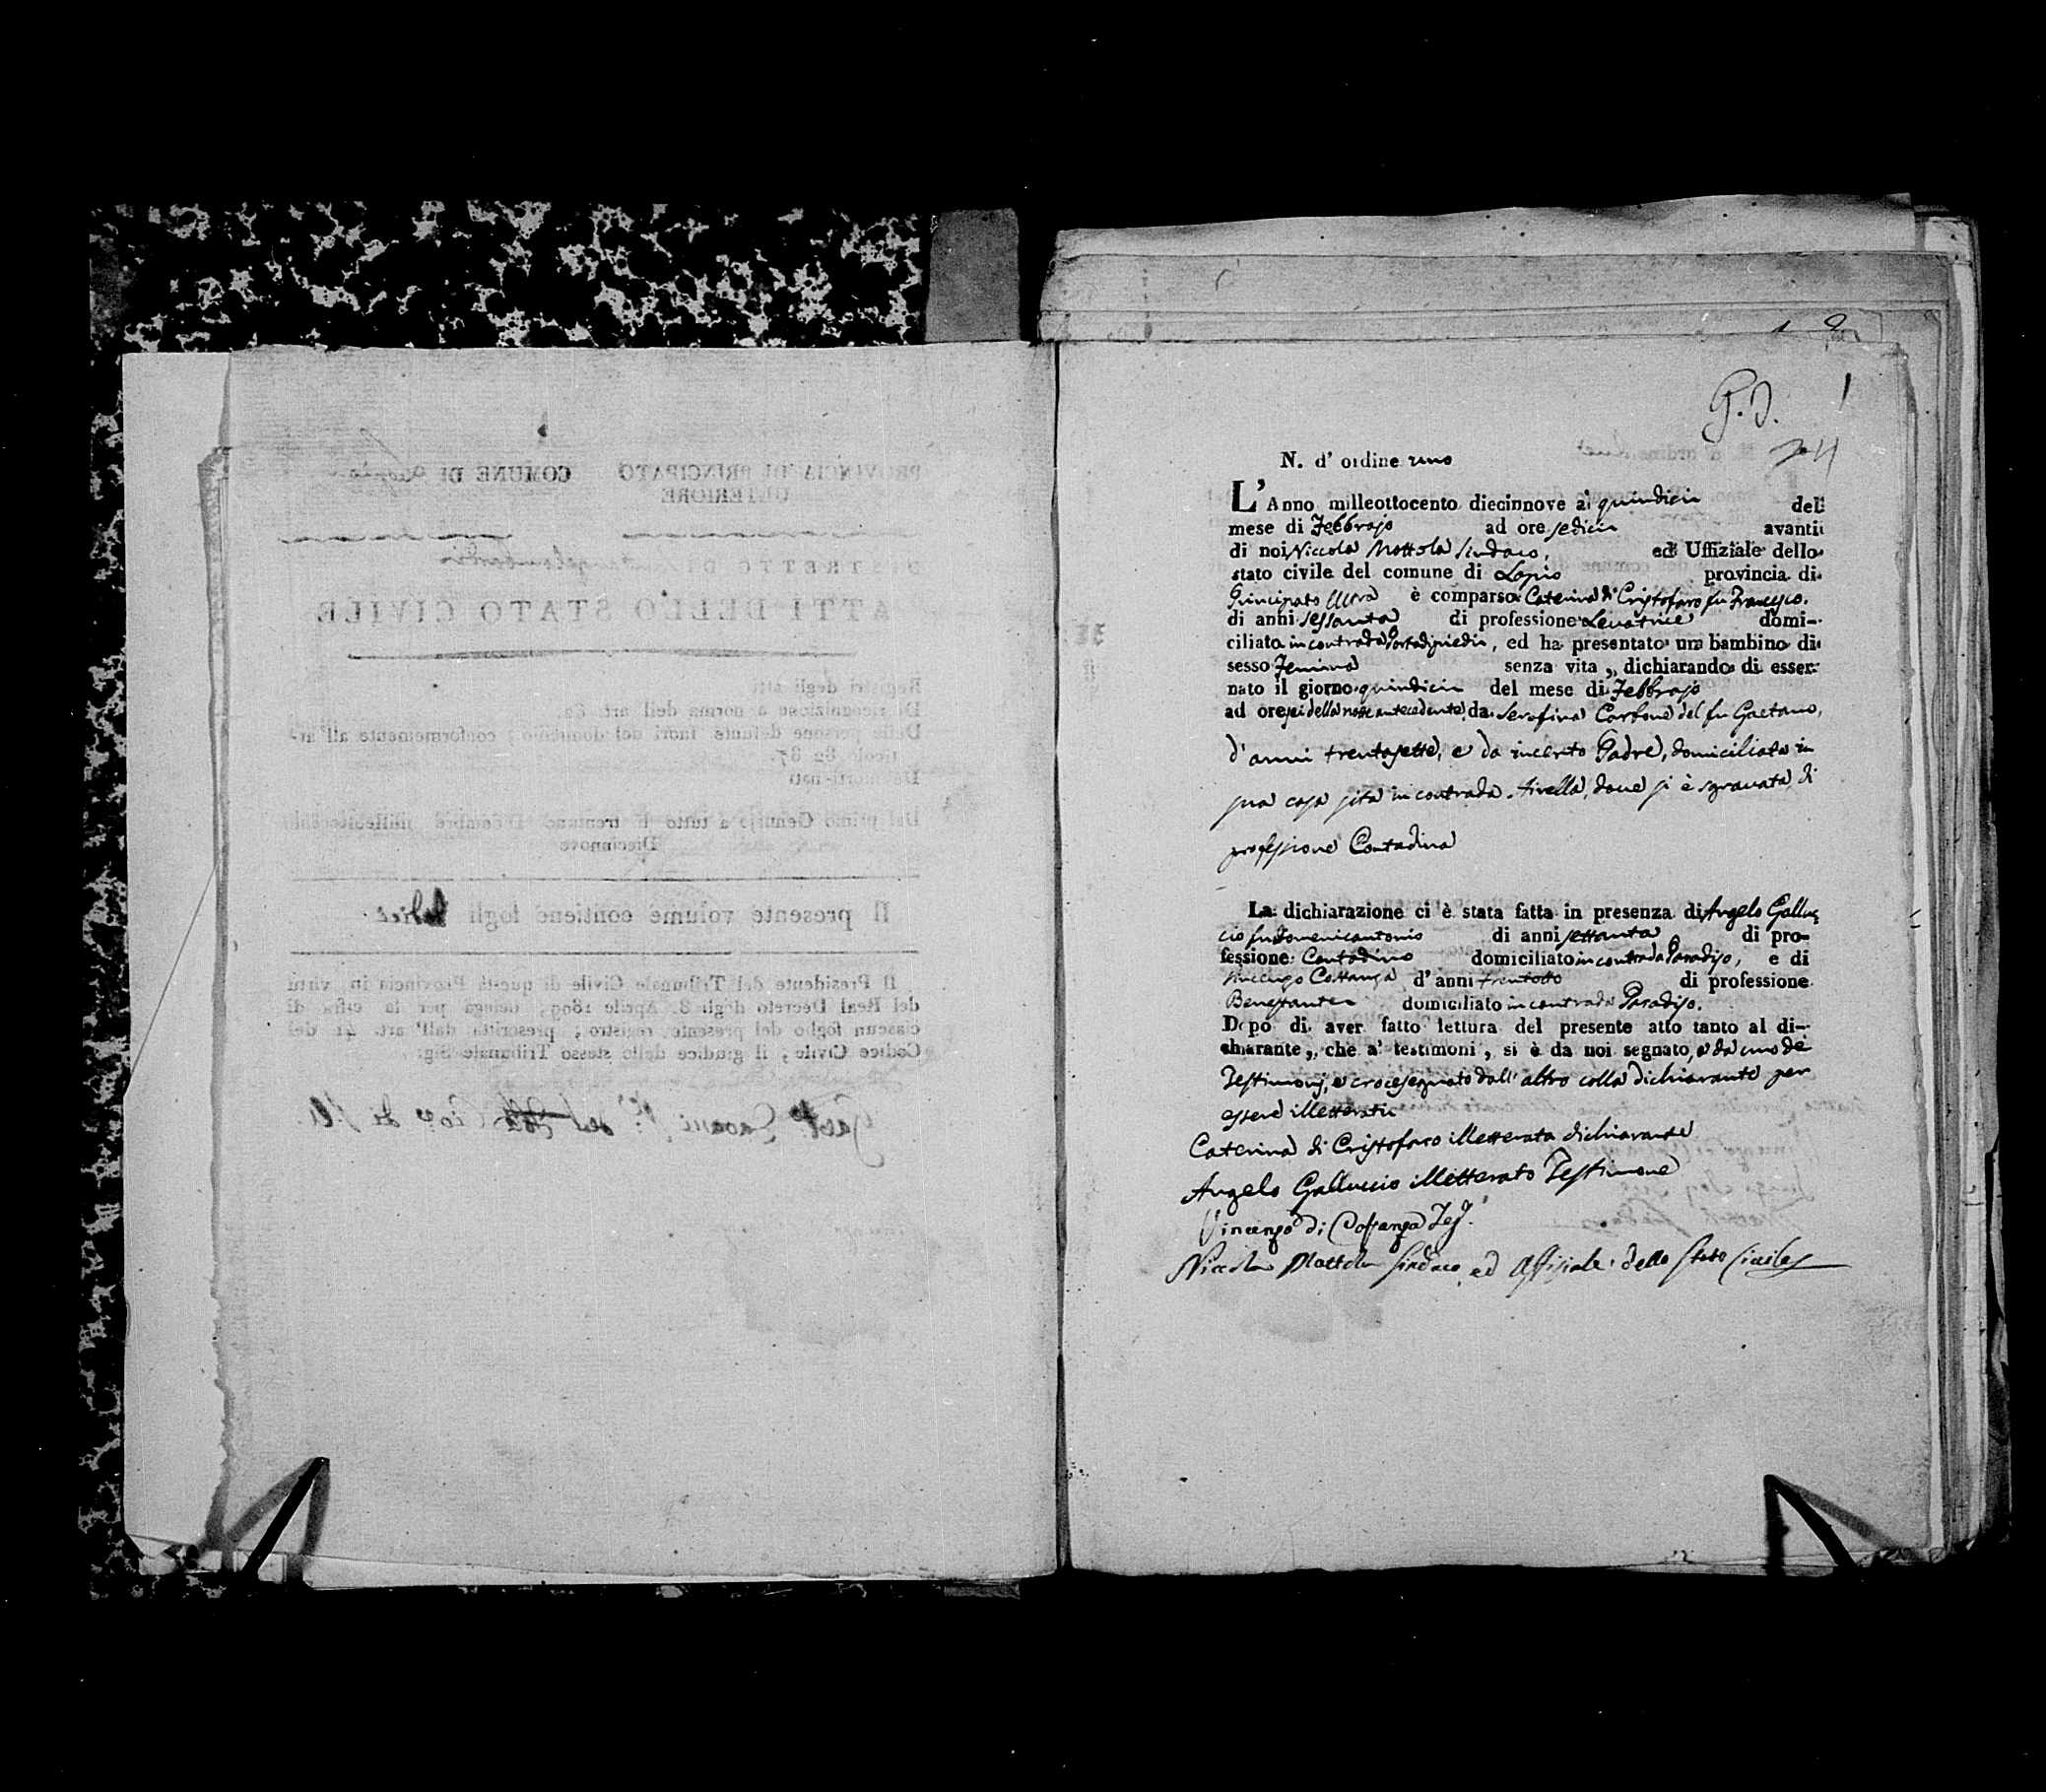 PROVINCIA DI PRINCIPATO
ULTERIORE
COMUNE DI
ATTI DELLO STATO CIVILE
Registri degli atti
Di ricognizione a norma dell art. 62.
Delle persone defunte fuori del domicilio; conformemente all' ar-
ticolo 82 87.
De' morti-nati
Dal primo Gennajo a tutto il trentuno Dicembre milleottocento
Diecinnove
Il presente volume contiene fogli
Il Presidente del Tribunale Civile di questa Provincia in virtù
del Real Decreto degli 8. Aprile 1809, delega per la cifra di
ciascun foglio del presente registro, prescritta dall' art. 41 del
Codice Civile; il giudice dello stesso Tribunale Sig.
1
G. D.
N. d' ordine uno
L' Anno milleottocento diecinnove a' quindici del
mese di Febbrajo ad ore sedici avanti
di noi Niccola Mottola Sindaco, ed Uffiziale dello
stato civile del comune di Lapio provincia di
Principato Ultra è comparsa Caterina di Cristofaro fu Francesco.
di anni sessanta di professione Levatrice domi-
ciliata in contrada Portadipiedi, ed ha presentato un bambino di
sesso Femina senza vita, dichiarando di esser
nato il giorno quindici del mese di Febbrajo
ad ore sei della notte antecedente, da Serafina Carbone del fu Gaetano,
d'anni trentasette, e da incerto Padre, domiciliata in
sua casa sita in contrada Aivella, dove si è sgravata, di
professione Contadina
La dichiarazione ci è stata fatta in presenza di Angelo Galluc
cio fu Domenicantonio di anni settanta di pro-
fessione Contadino domiciliato in contrada Paradiso, e di
Vincenzo Costanza d'anni trentotto di professione
Benestante domiciliato in contrada Paradiso.
Dopo di aver fatto lettura del presente atto tanto al di-
chiarante, che a' testimoni, si è da noi segnato, e da uno de
Testimonj, e crocesegnato dall' altro colla dichiarante per
essere illetterati
Caterina di Cristofaro illetterata dichiarante
Angelo Galluccio illetterato Testimone
Vincenzo di Costanza Tes.
Niccola Mottola Sindaco ed Offiziale dello Stato Civile